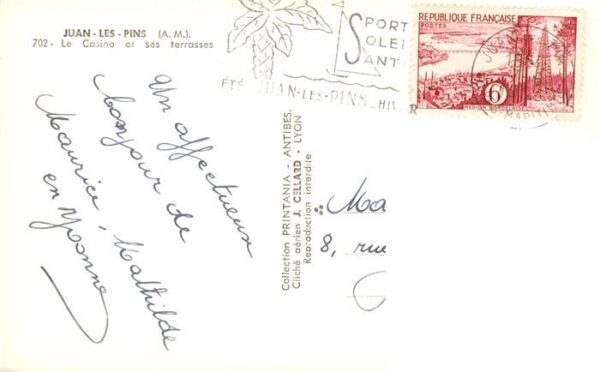 JUAN-LES-PINS (A. M.)
702 - Le Casino et ses terrasses
SPORT
SOLEI
SANT
ÉTÉ JUAN-LES-PINS HIV
RÉPUBLIQUE FRANÇAISE
POSTES
6F
Un affectueux
bonjour de
Maurice, Mathilde
en Yvonne
Collection PRINTANIA - ANTIBES.
Cliché aérien J. CELLARD - LYON
Reproduction interdite
Ma
8, rue